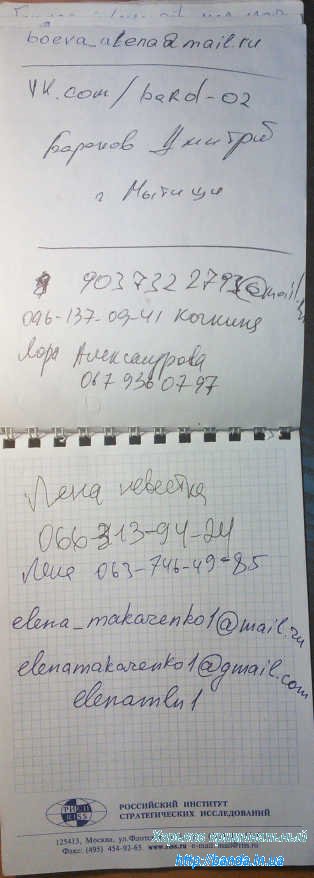 boeva_alena@mail.ru
VK.com/bard-02
Баранов Дмитрий
г Мытищи
9037322793@mail.ru
096-137-09-41
Лора Александрова
067 936 07 97
Лена невестка
066-313-94-24
Лена 063-746-49-85
elena_makarenko1@mail.ru
elenamakarenko1@gmail.com
РИСИ
RISS
РОССИЙСКИЙ ИНСТИТУТ
СТРАТЕГИЧЕСКИХ ИССЛЕДОВАНИЙ
125413, Москва, ул.
Факс: (495) 454-92-65 e-mail:
Харьков криминальный